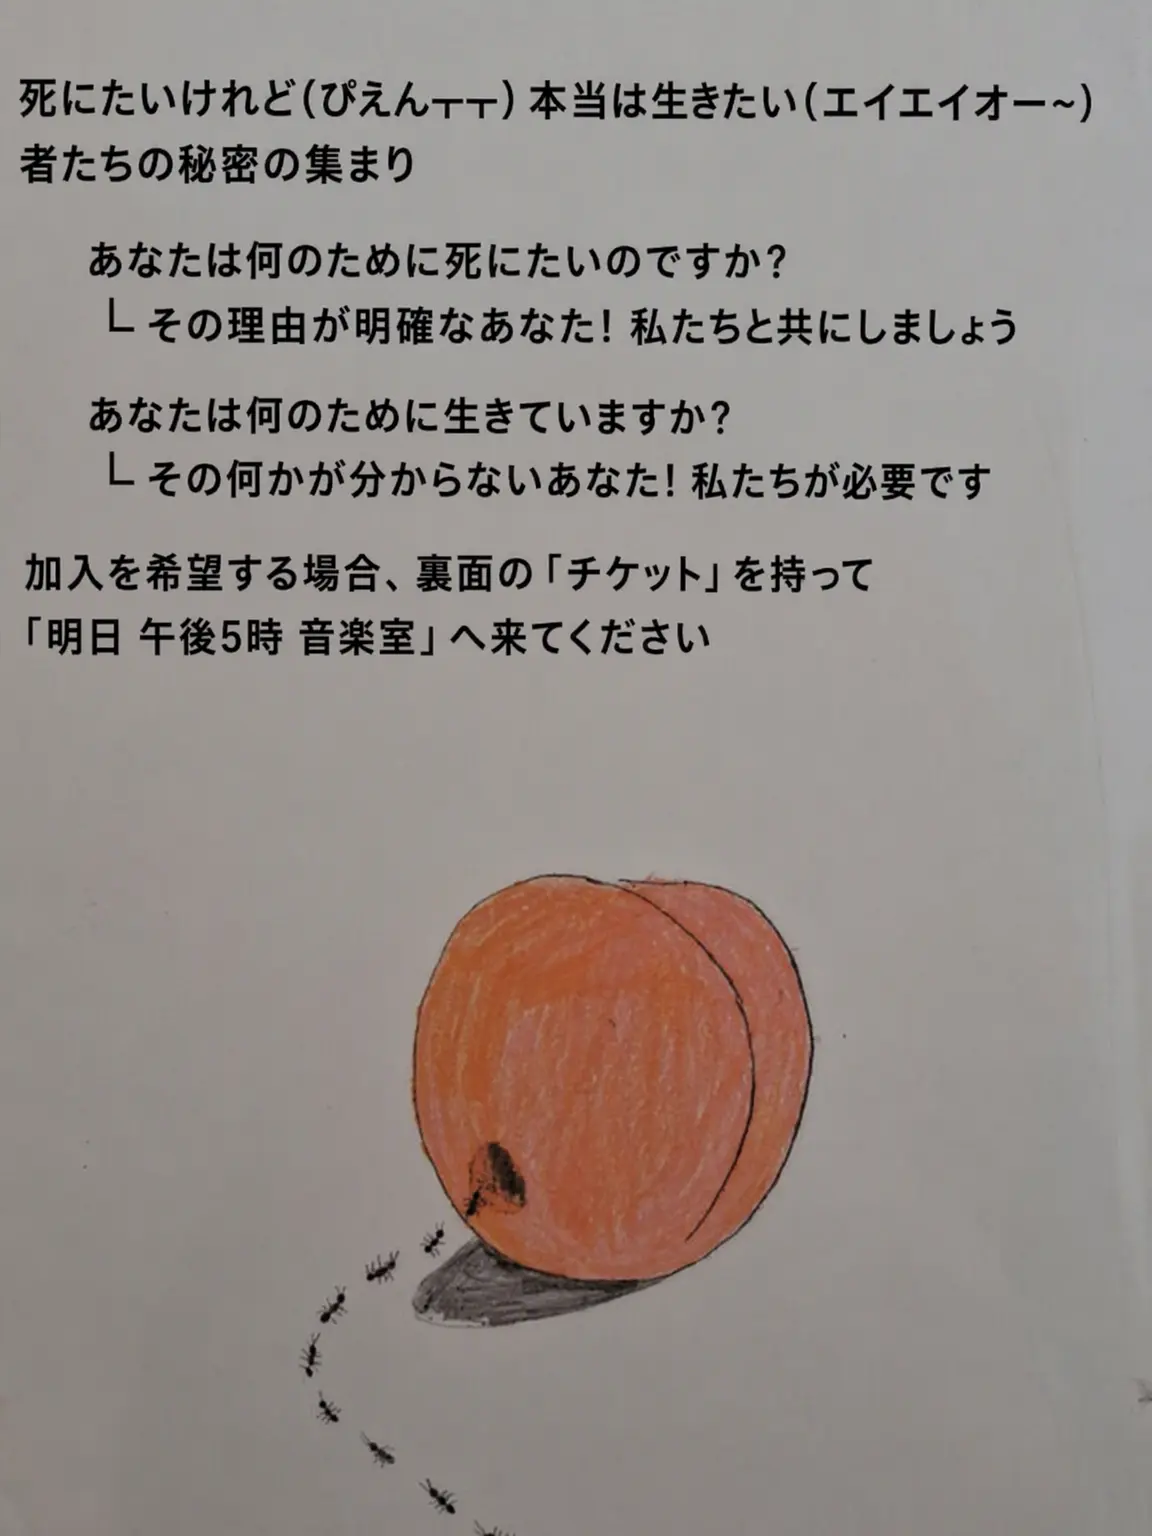 死にたいけれど(ぴえんㅜㅜ) 本当は生きたい(エイエイオー~)
者たちの秘密の集まり
あなたは何のために死にたいのですか?
└ その理由が明確なあなた! 私たちと共にしましょう
あなたは何のために生きていますか?
└ その何かが分からないあなた! 私たちが必要です
加入を希望する場合、裏面の「チケット」を持って
「明日 午後5時 音楽室」へ来てください